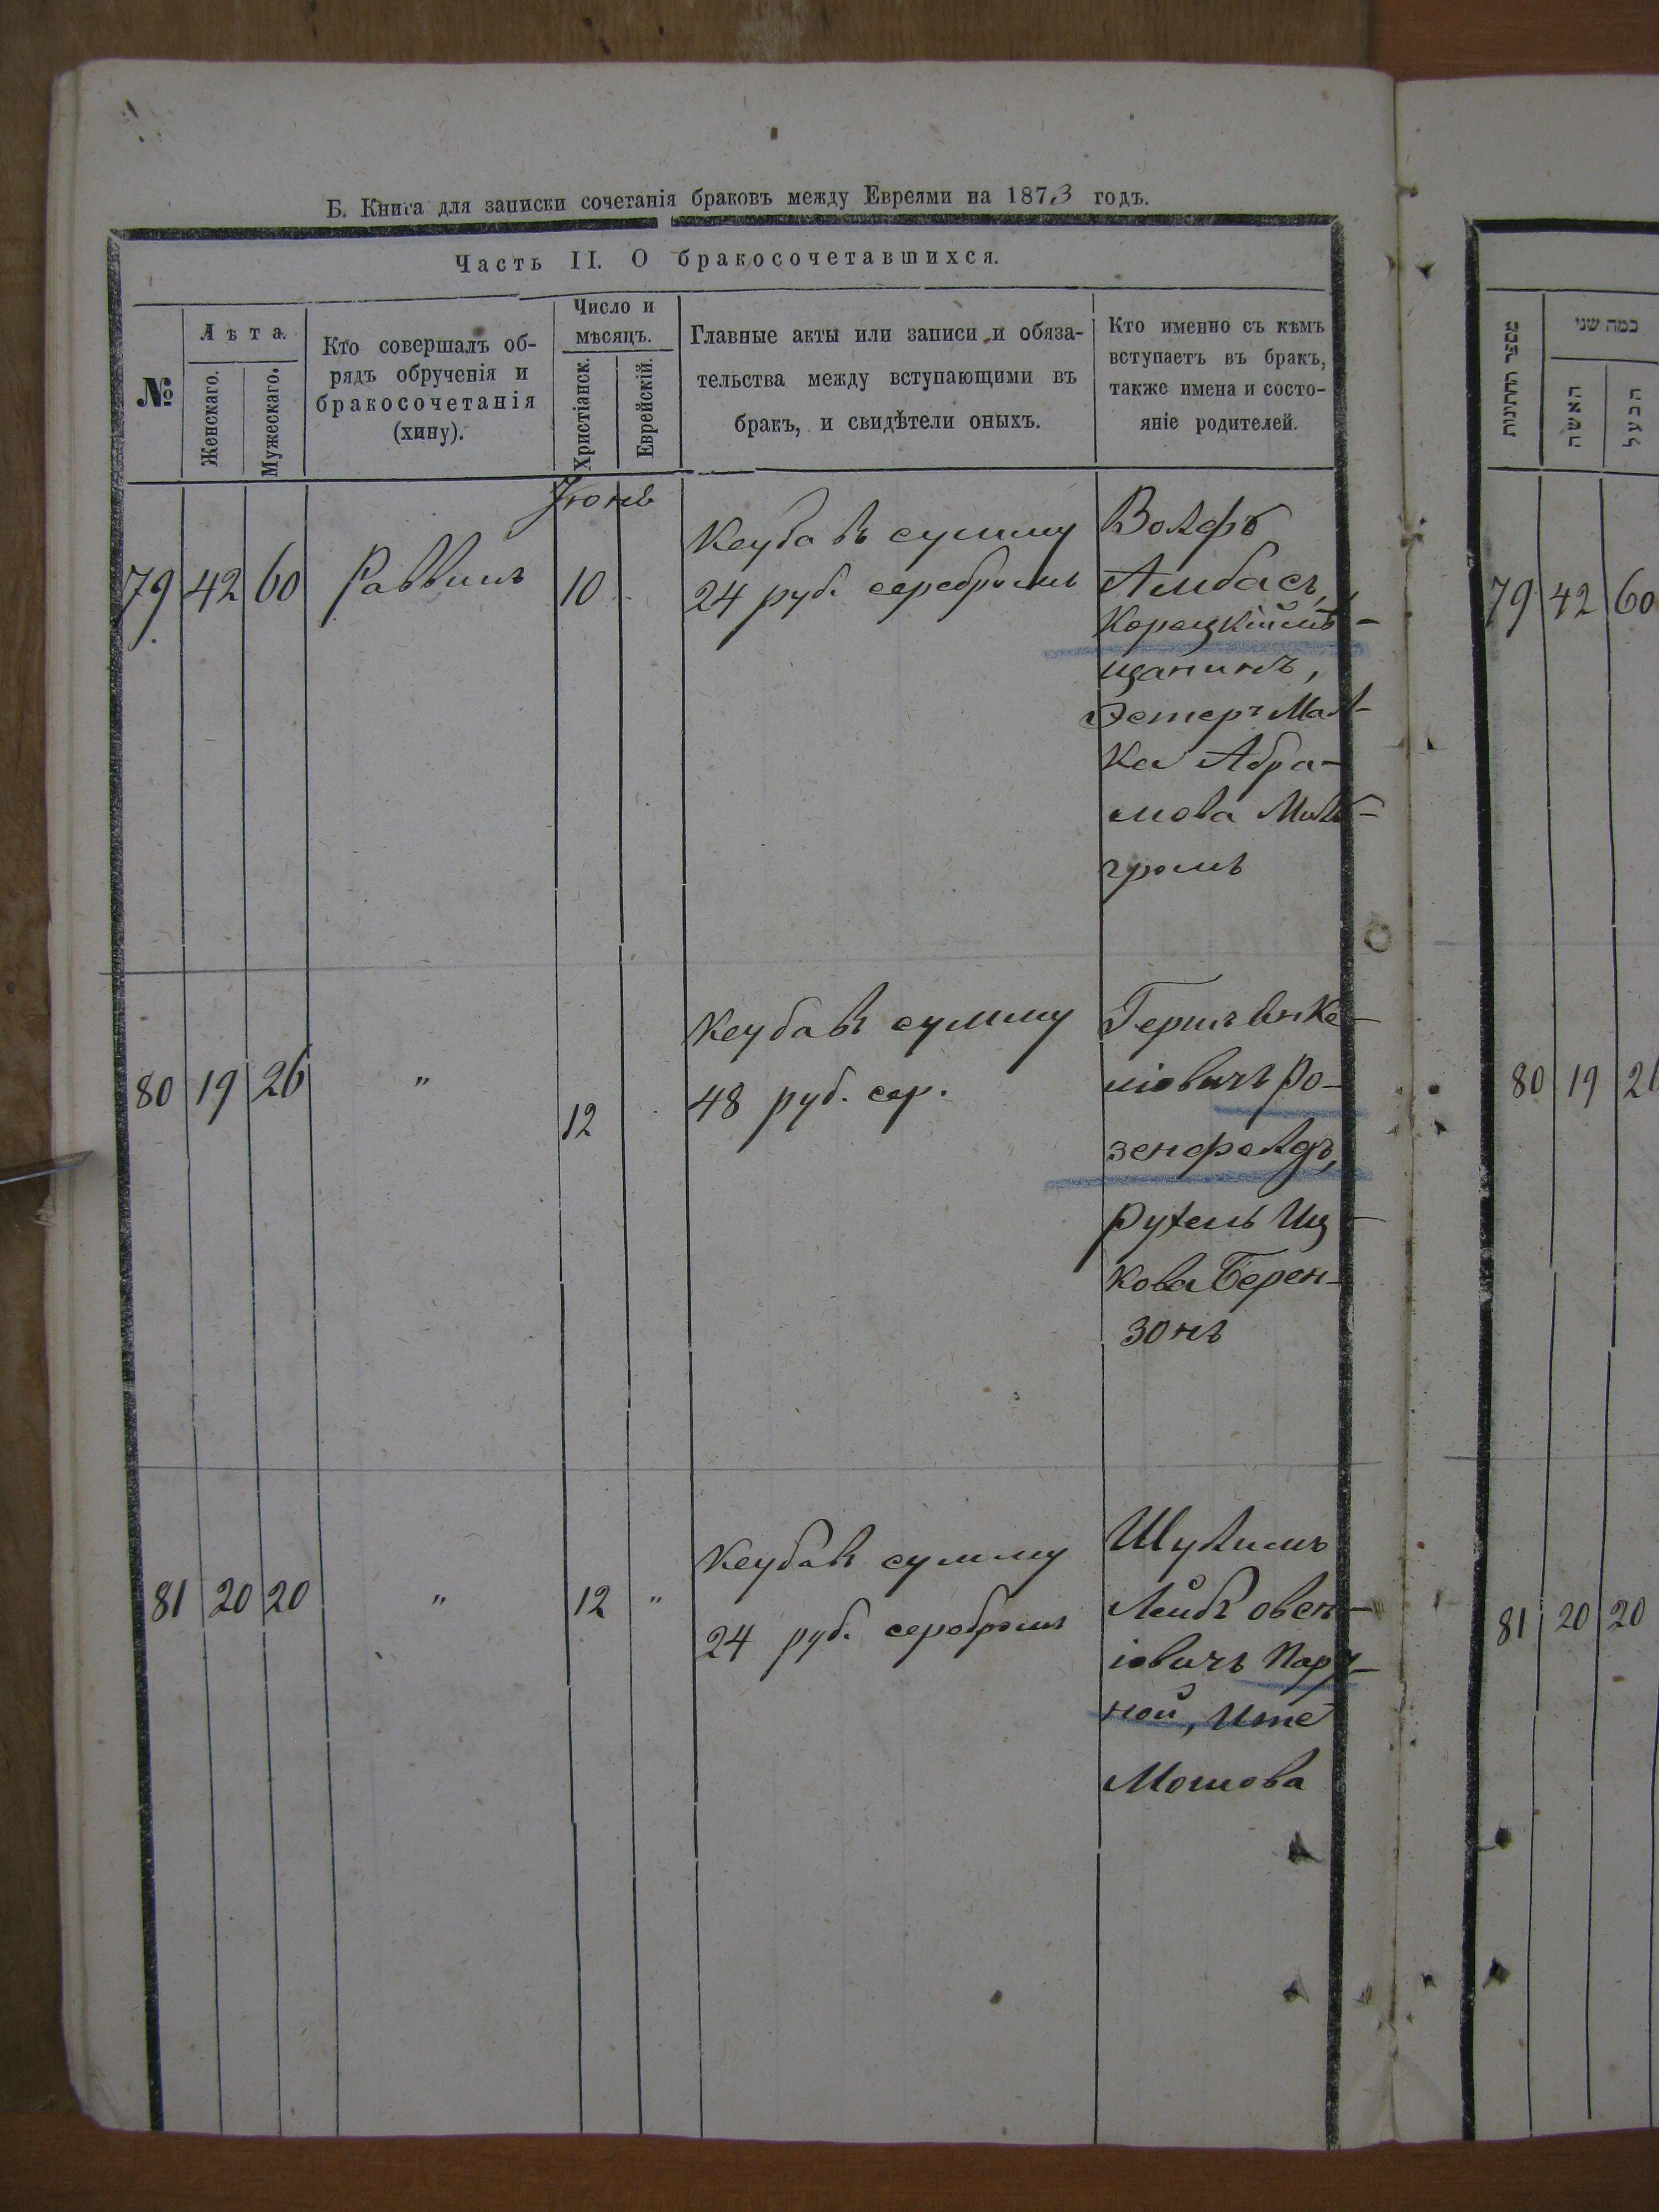 Б. Книга для записки сочетанія браковъ между Евреями на 1873 годъ.
Часть II. О бракосочетавшихся.
№
Лѣта.
Женскаго.
Мужескаго.
Кто совершалъ об-
рядъ обрученія и
бракосочетанія
(хину).
Число и
мѣсяцъ.
Христіанск.
Еврейскій.
Главные акты или записи и обяза-
тельства между вступающими въ
бракъ, и свидѣтели оныхъ.
Кто именно съ кѣмъ
вступаетъ въ бракъ,
также имена и состо-
яніе родителей.
Іюнь
79 42 60 Раввинъ 10
Кеуба въ сумму
24 руб. серебромъ
Вольфъ
Амбасъ,
Корецкій мѣ-
щанинъ,
Эстеръ Мал-
ка Абра-
мова Миль-
громъ
80 19 26 " 12
Кеуба въ сумму
48 руб. сер.
Гершъ
Ро-
зенфельдъ,
Рухель Иц-
кова Берен-
зонъ
81 20 20 " 12 "
Кеуба въ сумму
24 руб. серебромъ
Шулимъ
Лейбъ овсе-
іовичъ Парт-
ной, Ите
Мошова
מספר החתונות
כמה שני
האשה
הבעל
79 42 60
80 19 26
81 20 20